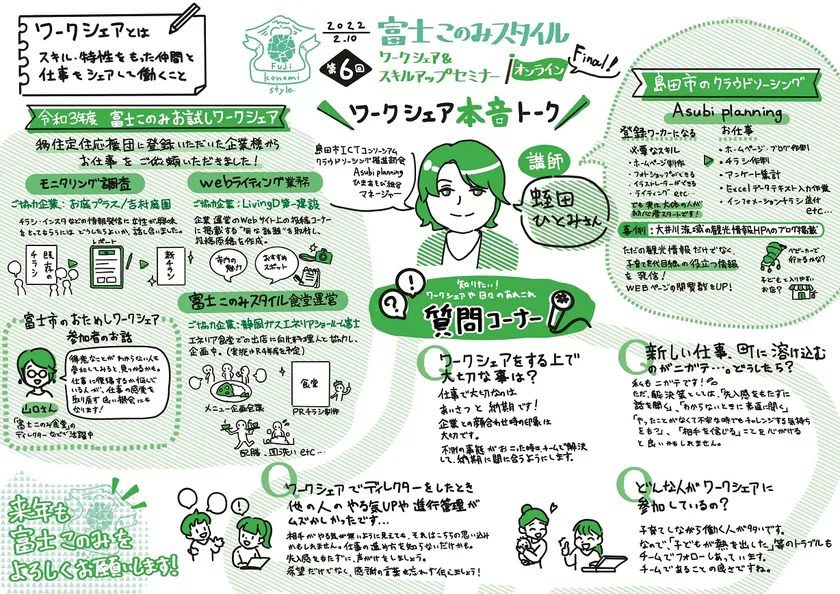 ワークシェアとは
スキル・特性をもった仲間と
仕事をシェアして働くこと
FUJI
konomi
style.
2022
2.10
第6回
富士このみスタイル
ワークシェア&
スキルアップセミナー
オンライン
Final!
ワークシェア本音トーク
島田市ICTコンソーシアム
クラウドソーシング推進部会
Asubi planning
マネージャー
講師
蛭田
ひとみさん
令和3年度 富士このみお試しワークシェア
移住定住応援団に登録いただいた企業様から
お仕事をご依頼いただきました!
モニタリング調査
ご協力企業:お庭プラス/吉村庭園
チラシ・インスタなどの情報発信に女性が興味
をもってもらうには、どうしたらよいか、話し合いました。
既存の
チラシ
レポート
新チラシ
webライティング業務
ご協力企業:LivingD第一建設
企業運営のWebサイト上の投稿コーナー
に掲載する"旬な話題"を取材し、
投稿原稿を作成。
市内の
魅力
おすすめ
スポット
富士このみスタイル食堂運営
ご協力企業:静岡ガスエネリアショールーム富士
エネリア食堂での出店に向け料理人と協力し、
企画中。(実施はR4年度を予定)
メニュー企画会議
食堂
PRチラシ制作
配膳、皿洗い etc…
富士市のおためしワークシェア
参加者のお話
得意なことがわからない人も
参加してみると、見つかるかも。
仕事に復帰するか悩んで
いる人が、仕事の感覚を
取り戻す良い機会にも
なります!
山口さん
「富士このみ食堂」の
ディレクターなどで活躍中
島田市のクラウドソーシング
Asubi planning
登録ワーカーになる
必要なスキル
・ホームページ制作
・フォトショップができる
・イラストレーターができる
・ライティング etc…
でも実は大体の人が
初心者スタートです!
お仕事
・ホームページ・ブログ作制
・チラシ作制
・アンケート集計
・Excelデータテキスト入力作業
・インフォメーションチラシ送付
etc…
事例:大井川流域の観光情報HPへのブログ掲載
ただの観光情報だけでなく、
子育て世代目線の役立つ情報
を発信!
WEBページの閲覧数をUP!
ベビーカーで
行けるかな?
子どもと入りやすい
お店?
知りたい!
ワークシェアや日々のあれこれ
質問コーナー
Q ワークシェアをする上で
大切な事は?
仕事で大切なのは
あいさつと納期です!
企業との顔合わせ時の印象は
大切です。
不測の事態がおこった時は、チームで解決
して、納期に間に合うようにします。
Q 新しい仕事、町に溶け込む
のがニガテ…。どうしたら?
私もニガテです!
ただ、解決策としては、「先入感をもたずに
話を聞く」、「わからないときに素直に聞く」
「やったことがなくて不安な時でもチャレンジする気持ち
をもつ」、「相手を信じる」ことを心がける
と良いかもしれません。
Q ワークシェアでディレクターをしたとき
他の人のやる気UPや進行管理が
ムズかしかったです…
相手がやる気が無いように見えても、それはこちらの思い込み
かもしれません。仕事の進め方を知らないだけかも。
先入感をもたずに、声がけをしましょう。
希望だけでなく、感謝の言葉も忘れず伝えましょう!
Q どんな人がワークシェアに
参加しているの?
子育てしながら働く人が多いです。
なので、「子どもが熱を出した」等のトラブルも
チームでフォローしあっています。
チームであることの良さですね。
来年も
富士このみを
よろしくお願いします!